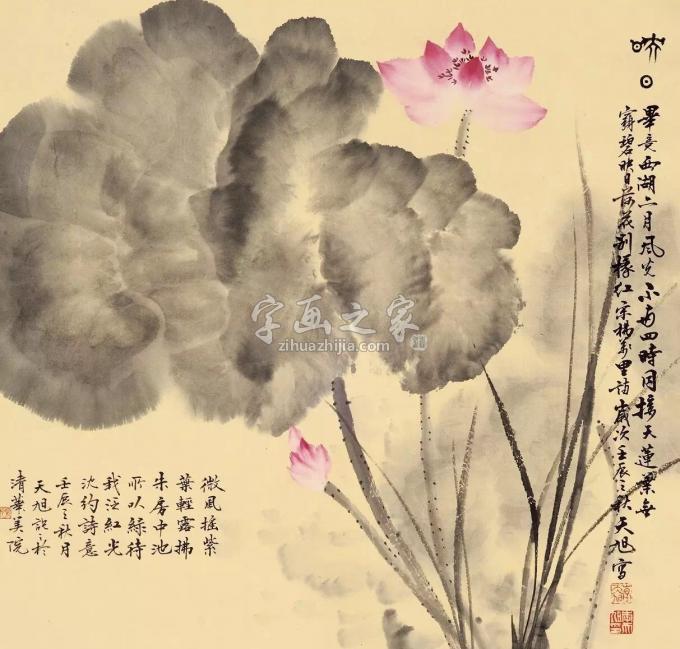 映日
畢竟西湖六月風光不與四時同接天蓮葉無
窮碧映日荷花別樣紅宋楊萬里詩歲次壬辰之秋天旭寫
微風搖紫
葉輕露拂
朱房中池
所以綠待
我泛紅光
沈約詩意
壬辰之秋月
天旭記之於
清華美院
字画之家
zihuazhijia.com